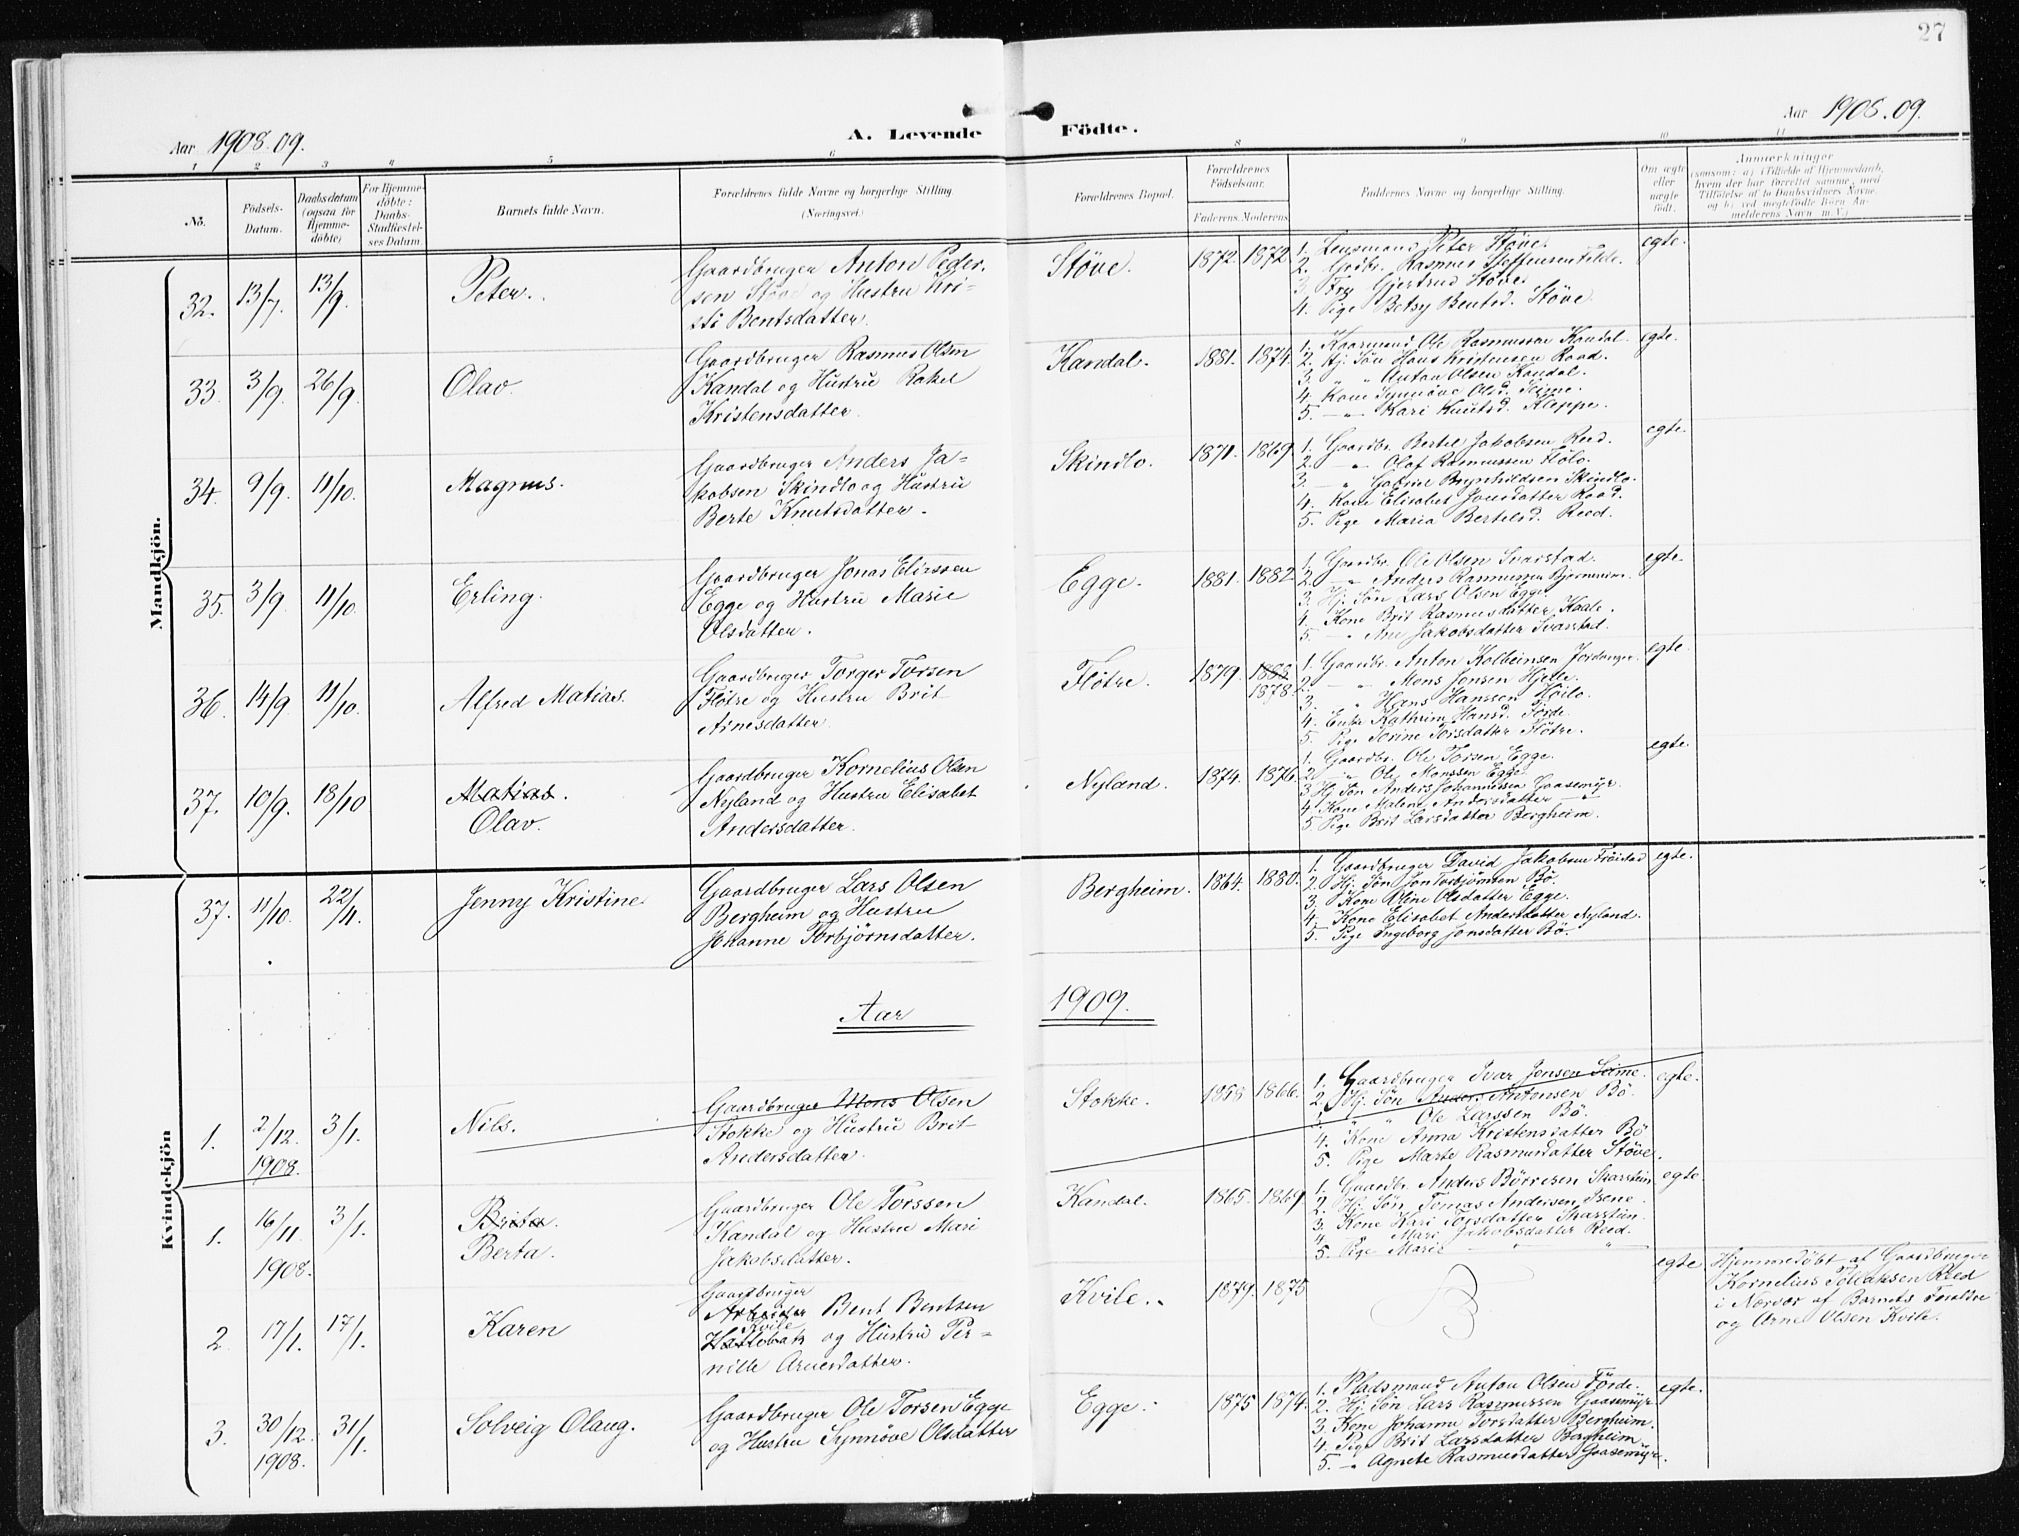 27
Aar 1908.09.
A. Levende Födte.
Aar 1908.09.
1 2 3 4 5 6 8 9 10 11
No.
Födsels-Datum.
Daabsdatum (ogsaa for Hjemme-döbte)
For Hjemme-döbte: Daabs-Stadfæstel-ses Datum
Barnets fulde Navn.
Forældrenes fulde Navne og borgerlige Stilling.
(Næringsvei.)
Forældrenes Bopæl.
Forældrenes Födselsaar.
Faderens. Moderens.
Faddernes Navne og borgerlige Stilling.
Om ægte eller uægte födt.
Anmærkninger
(saasom: a) i Tilfælde af Hjemmedaab,
hvem der har forrettet samme, med
Tilföielse af to Daabsvidners Navne,
og b) ved uægtefödte Börn An-
melderens Navn m. V.)
Mandkjön.
32. 13/7. 13/9. Peter.
Gaardbruger Anton Peder-
sen Støve og Hustru Kri-
sti Bentsdatter.
Støve. 1872. 1872
1. Lensmand Peter Støve.
2. Grdbr. Rasmus Steffensen Filde.
3. Fru Gjertrud Støve.
4. Pige Betsy Bentsd. Støve.
egte.
33. 3/9. 26/9. Olav.
Gaardbruger Rasmus Olsen
Kandal og Hustru Rakel
Kristensdatter.
Kandal. 1881. 1874.
1. Kaarmand Ole Rasmussen Kandal.
2. Hj. Søn Hans Kristensen Raad.
3. " " Anton Olsen Kandal.
4. Kone Synnøve Olsd. Seime.
5. — " — Kari Knutsd. Kleppe.
egte.
34. 9/9. 11/10. Magnus.
Gaardbruger Anders Ja-
kobsen Skindlo og Hustru
Berte Knutsdatter.
Skindlo. 1871. 1869
1. Gaardbr. Bertel Jakobsen Reed.
2. — " Olaf Rasmussen Flølo.
3. — " Gabriel Brynhildsen Skindlo.
4. Kone Elisabet Jonsdatter Raad.
5. Pige Maria Bertelsd. Reed.
egte.
35. 3/9. 11/10. Erling.
Gaardbruger Jonas Eliassen
Egge og Hustru Marie
Olsdatter.
Egge. 1881. 1882.
1. Gardbr. Ole Olsen Svarstad.
2. — " Anders Rasmussen Bjerneim.
3. Hj. Søn Lars Olsen Egge.
4. Kone Brit Rasmusdatter Kaale.
5. — " Ane Jakobsdatter Svarstad.
egte.
36. 14/9. 11/10. Alfred Matias.
Gaardbruger Torger Torsen
Fløtre og Hustru Brit
Arnesdatter.
Fløtre. 1879. 1883.
1878.
1. Gaardbr. Anton Kolbeinsen Jordanger.
2. — " Mons Jensen Hjelle.
3. " Hans Hanssen Høilo.
4. Enke Kathrine Hansd. Førde.
5. Pige Torine Torsdatter Fløtre.
egte.
37. 10/9. 18/10 Matias.
Olav.
Gaardbruger Kornelius Olsen
Nyland og Hustru Elisabet
Andersdatter.
Nyland. 1874. 1876.
1. Gaardbr. Ole Torsen Egge.
2. — " Ole Monssen Egge.
3. Hj Søn Anders Johannessen Gaasemyr.
4. Kone Malene Andersdatter — "
5. Pige Brit Larsdatter Bergheim.
egte.
Kvindekjön
37. 11/10. 22/11. Jenny Kristine.
Gaardbruger Lars Olsen
Bergheim og Hustru
Johanne Torbjørnsdatter.
Bergheim. 1864. 1880.
1. Gaardbruger David Jakobsen Frøistad
2. Hj. Søn Jon Torbjørnsen Bø.
3. Kone Oline Olsdatter Egge.
4. Kone Elisabet Andersdatter Nyland.
5. Pige Ingeborg Jonsdatter Bø.
egte.
Aar 1909.
1. 2/12. 1908. 3/1. Nils.
Gaardbruger Mons Olsen
Stokke og Hustru Brit
Andersdatter.
Stokke. 1866.
1. Gaardbruger Ivar Jensen Seime.
2. Hj. Søn Anders Antonsen Bø.
3. " " Ole Larssen Bø.
4. Kone Anna Kristensdatter Bø
5. Pige Marte Rasmusdatter Støve.
egte.
1. 16/11. 1908. 3/1. Brita.
Berta.
Gaardbruger Ole Torssen
Kandal og Hustru Mari
Jakobsdatter.
Kandal. 1865. 1869
1. Gaardbr. Anders Børresen Skarstein
2. Hj. Søn Tomas Andersen Isene.
3. Kone Kari Torsdatter Skarstein.
4. " Mari Jakobsdatter Reed.
5. Pige Marie — " — "
egte.
2. 17/1. 17/1. Karen
Gaardbruger
Arbeider Bent Bentsen
Kvile
Hattebak og Hustru Per-
nille Arnesdatter.
Kvile. 1879. 1875
egte
Hjemmedøbt af Gaardbruger
Kornelius Tollaksen Reed
i Nærvær af Barnets Forældre
og Arne Olsen Kvile.
3. 30/12. 1908. 31/1. Solveig Olaug.
Gaardbruger Ole Torsen Egge
og Hustru Synnøve Olsdatter
Egge. 1875 1874.
1. Pladsmand Anton Olsen Førde.
2. Hj. Søn Lars Rasmussen Gaasemyr.
3. Kone Johanne Torsdatter Bergheim.
4. Pige Brit Larsdatter Bergheim
5. — " Agnete Rasmusdatter Gaasemyr.
egte.